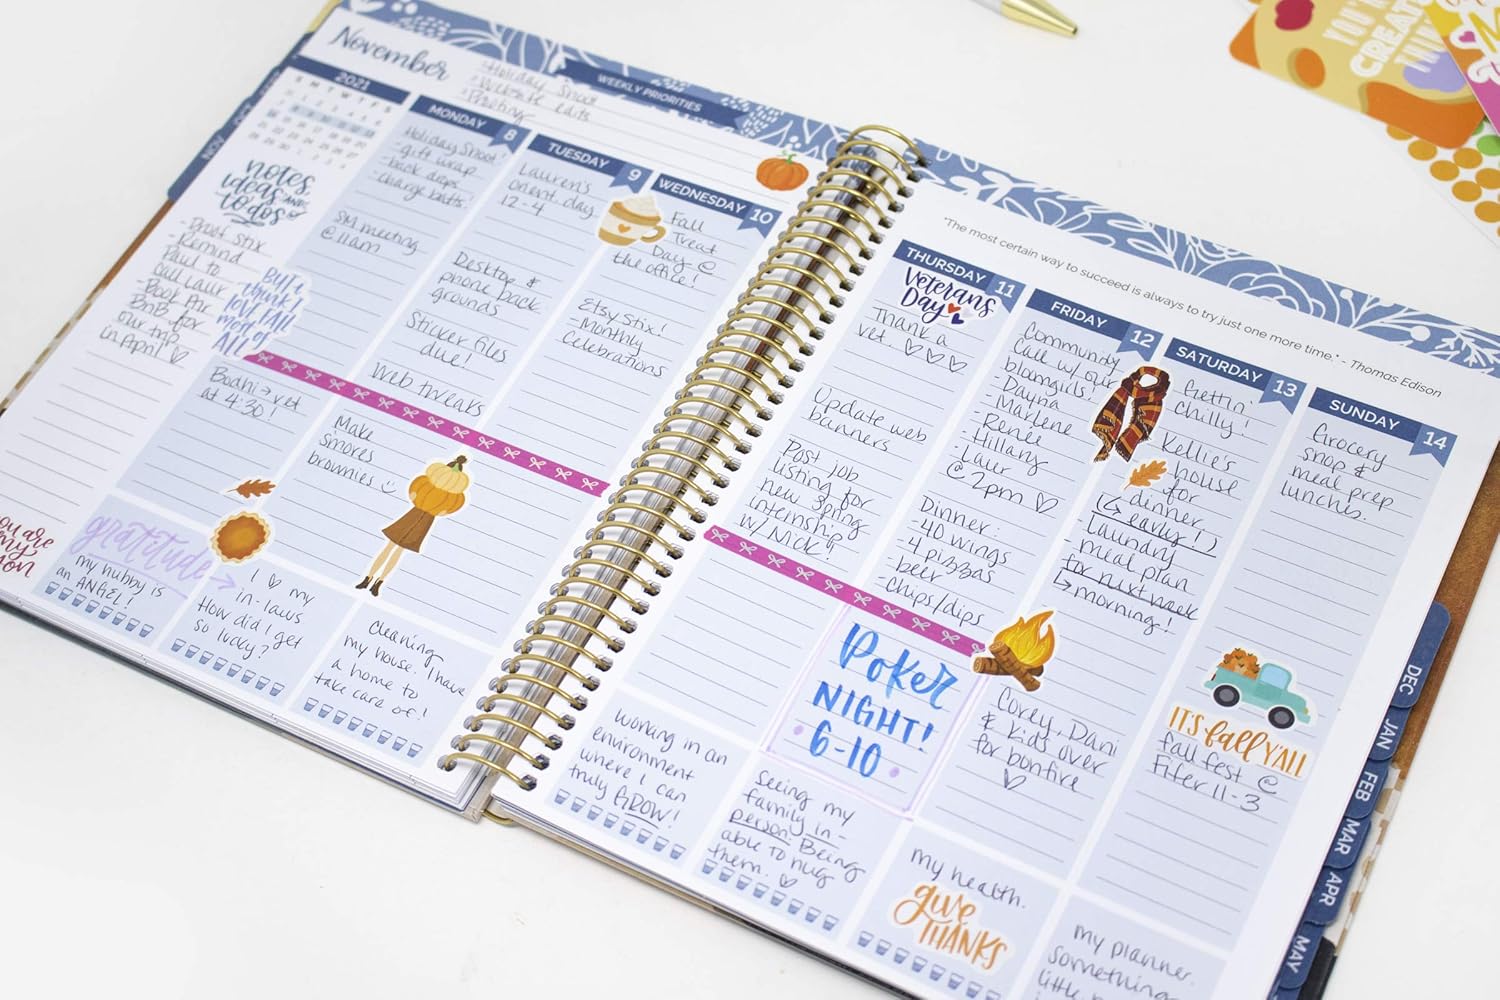 November
Holiday Shoot
Website edits
WEEKLY PRIORITIES
2021
S M T W T F S
notes,
ideas AND
to dos
- Proof Stix
- Remind
Paul to
call Laur
- Book Air
BnB for
our trip
in April
But I
think I
love fall
most of
ALL
you are
my
MONDAY 8
Holiday Shoot!
- gift wrap
- back drops
- charge batts!
SM meeting
@ 11am
Bodhi → vet
at 4:30!
gratitude
my hubby is
an ANGEL!
TUESDAY 9
Lauren's
orient. day
12-4
Desktop &
phone back
grounds
Sticker files
due!
Web tweaks
Make
s'mores
brownies
I ♡ my
in-laws
How did I get
so lucky?
WEDNESDAY 10
Fall
Treat
Day @
the office!
Etsy Stix!
- Monthly
Celebrations
cleaning
my house. I have
a home to
take care of!
"The most certain way to succeed is always to try just one more time." - Thomas Edison
THURSDAY 11
Veterans
Day
Thank a
vet. ♡♡♡
Update web
banners
Post job
listing for
new Spring
internship
w/ Nick!
working in an
environment
where I can
truly GROW!
FRIDAY 12
Community
Call w/ our
bloomgirls!
- Dayna
- Marlene
- Renée
- Hillary
- Laur
@ 2pm ♡
Dinner:
- 40 wings
- 4 pizzas
- beer
- chips/dips
Poker
NIGHT!
6-10
Seeing my
family in-
person. Being
able to hug
them. ♡
SATURDAY 13
Gettin'
chilly!
Kellie's
house
for
dinner
(↳ early!)
- Laundry
- meal plan
for next week
↳ morning!
Corey, Dani
& kids over
for bonfire
♡
my health.
give
THANKS
SUNDAY 14
Grocery
shop &
meal prep
lunches.
IT'S fall Y'ALL
fall fest @
Fifer 11-3
my planner.
something
NOV
DEC
JAN
FEB
MAR
APR
MAY
YOU'RE